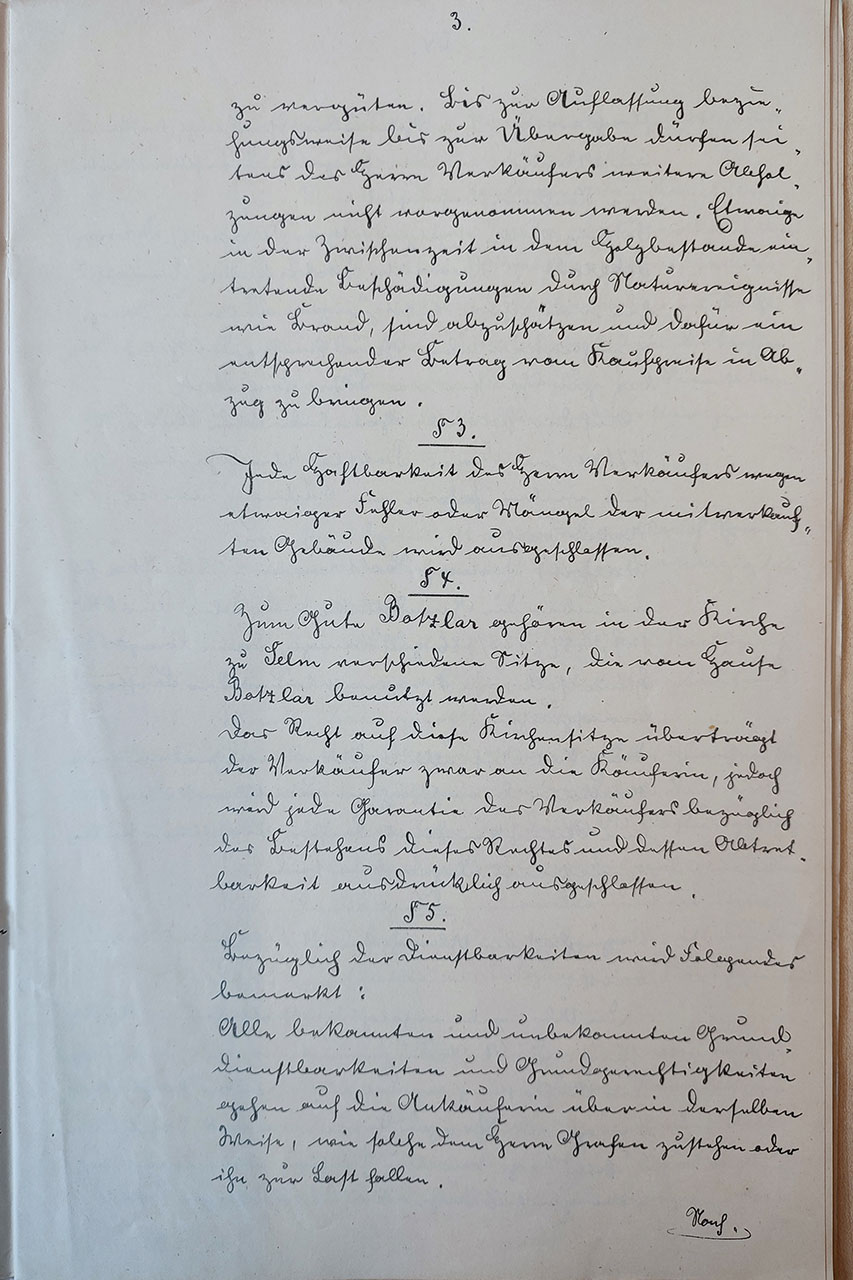 3.
zu vergüten. Bis zur Auflassung bezie„
hungsweise bis zur Übergabe dürfen sei„
tens des Herrn Verkäufers weitere Abhol„
zungen nicht vorgenommen werden. Etwaige
in der Zwischenzeit in dem Holzbestande ein„
tretende Beschädigungen durch Naturereignisse
wie Brand, sind abzuschätzen und dafür ein
entsprechender Betrag vom Kaufpreise in Ab„
zug zu bringen.
§ 3.
Jede Haftbarkeit des Herrn Verkäufers wegen
etwaiger Fehler oder Mängel der mitverkauf„
ten Gebäude wird ausgeschlossen.
§ 4.
Zum Gute Botzlar gehören in der Kirche
zu Selm verschiedene Sitze, die vom Hause
Botzlar benutzt werden.
Das Recht auf diese Kirchensitze überträgt
der Verkäufer zwar an die Käuferin, jedoch
wird jede Garantie des Verkäufers bezüglich
des Bestehens dieses Rechtes und dessen Abtret„
barkeit ausdrücklich ausgeschlossen.
§ 5.
Bezüglich der Dienstbarkeiten wird Folgendes
bemerkt:
Alle bekannten und unbekannten Grund„
dienstbarkeiten und Grundgerechtigkeiten
gehen auf die Ankäuferin über in derselben
Weise, wie solche dem Herrn Grafen zustehen oder
ihn zur Last fallen.
Nach.